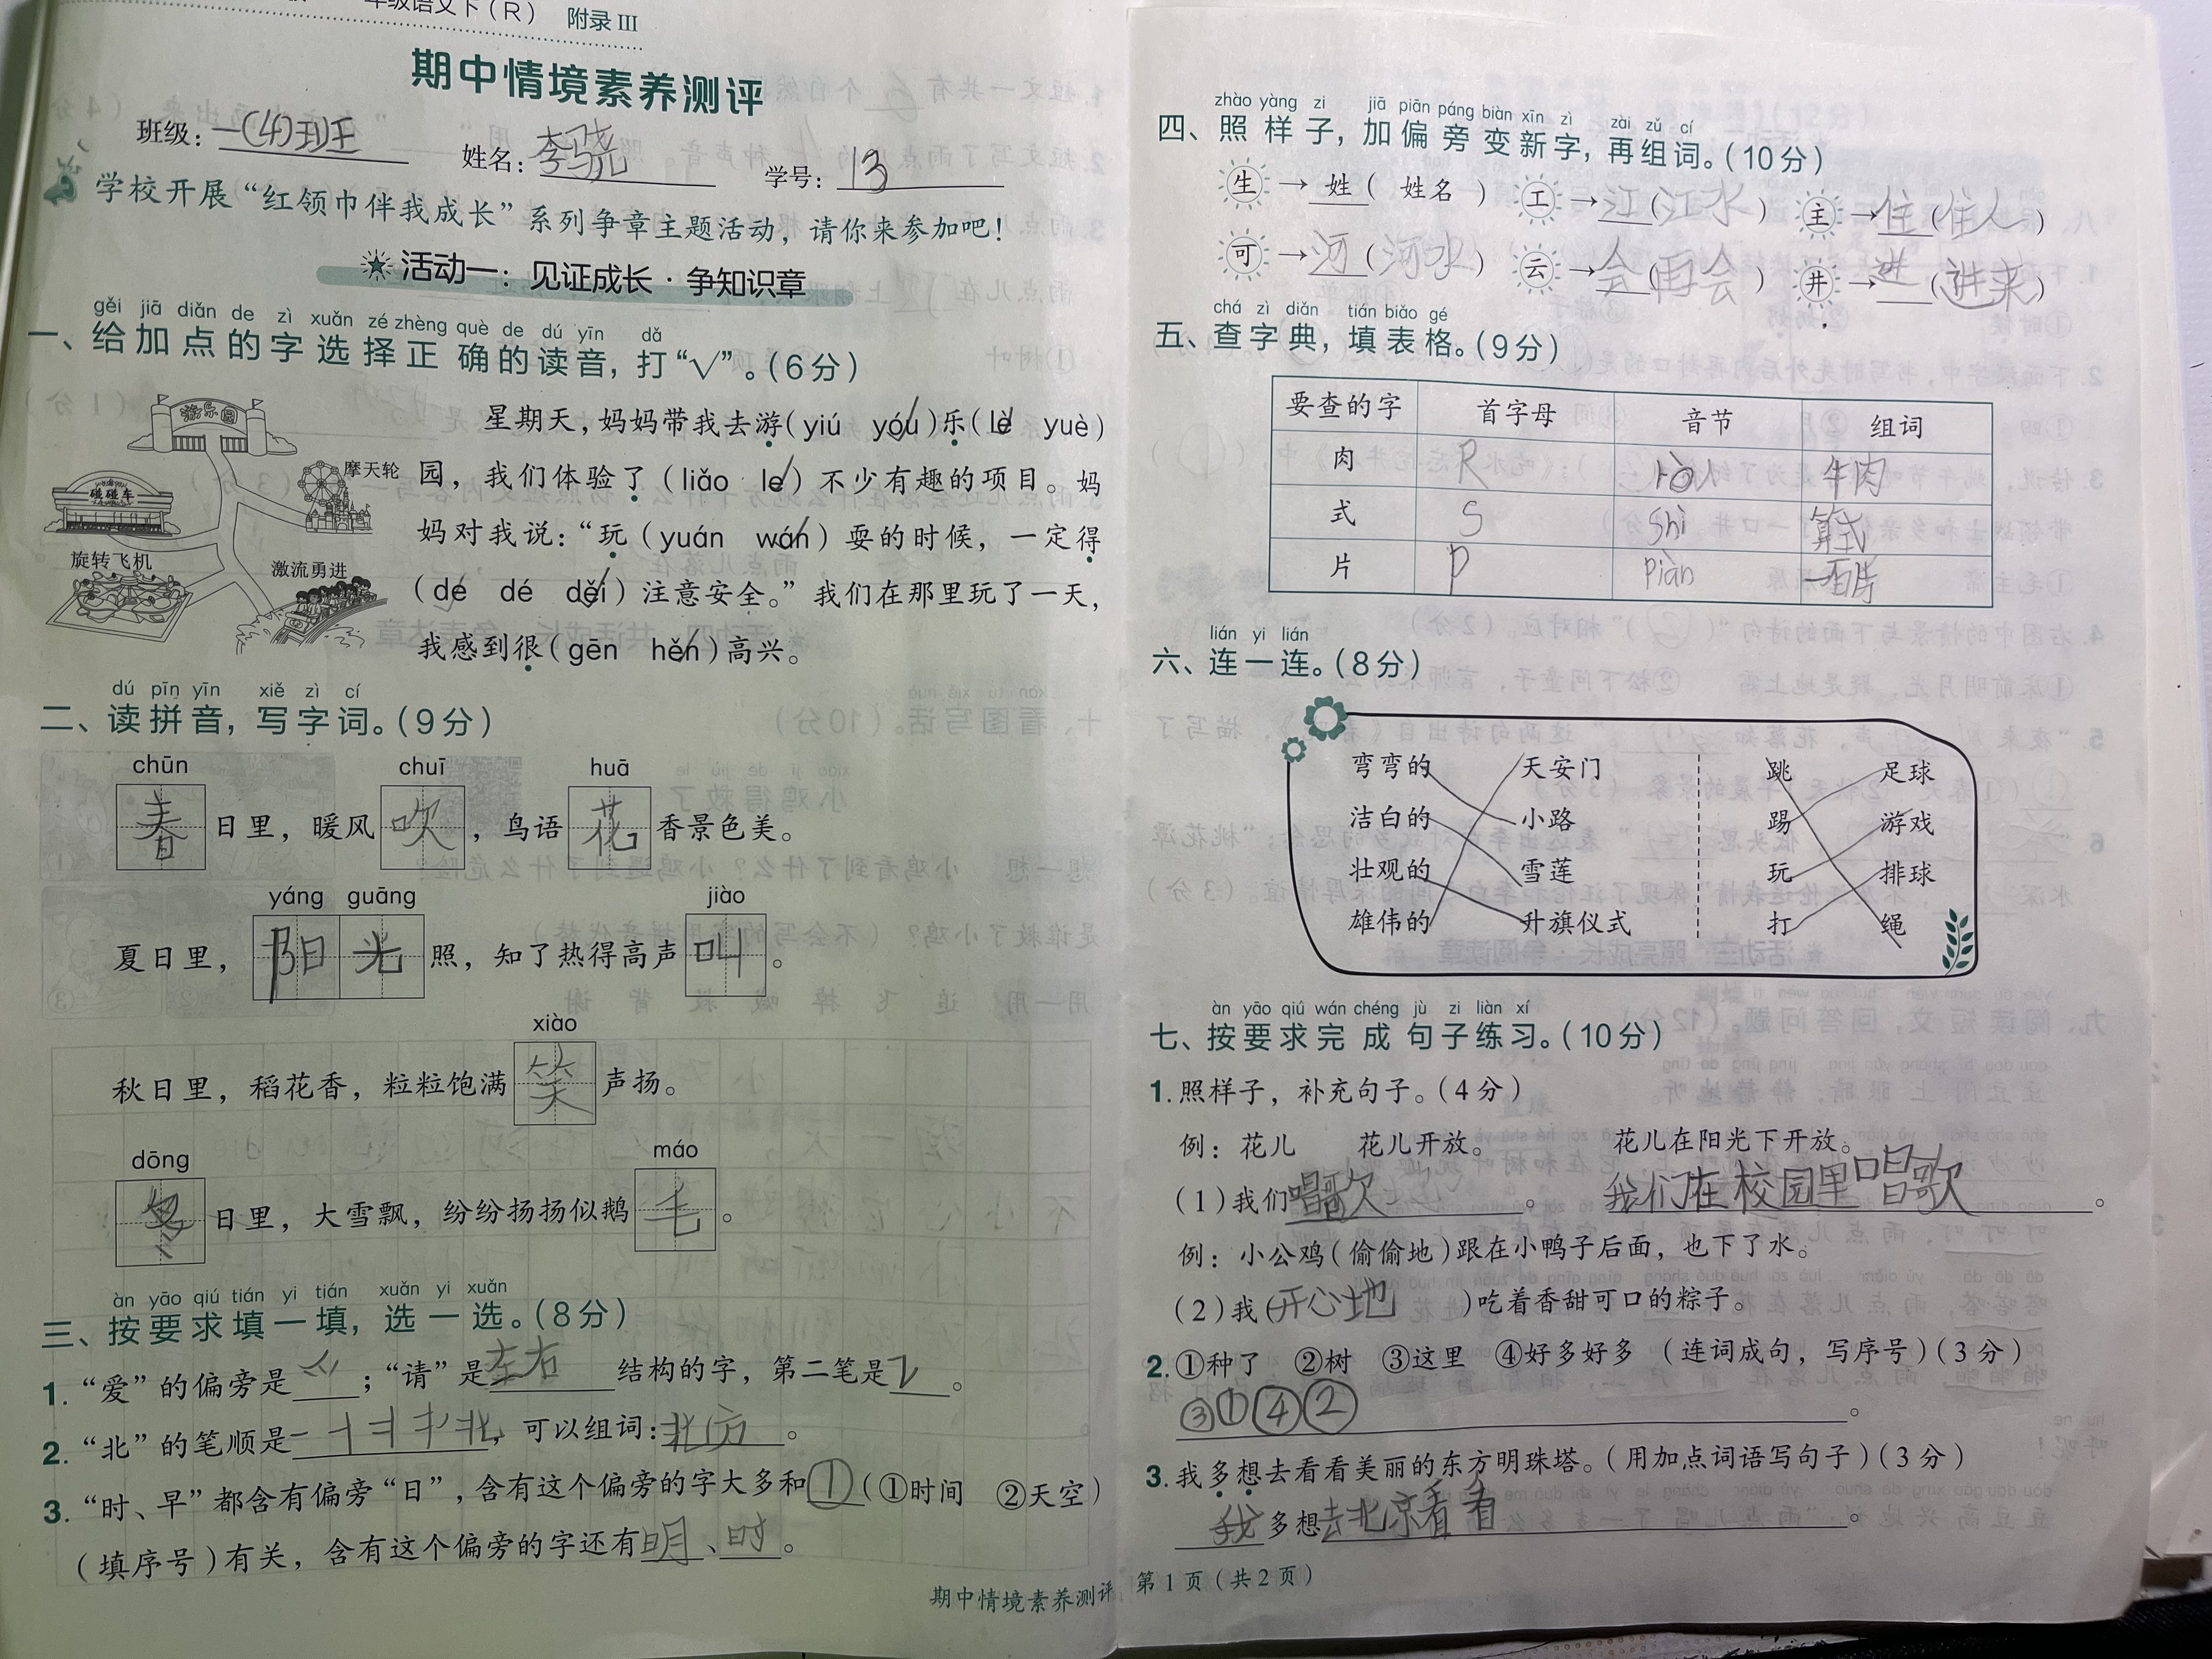 年级语文下（R） 附录Ⅲ
期中情境素养测评
班级：一(4)班 姓名：李骁 学号：13
学校开展“红领巾伴我成长”系列争章主题活动，请你来参加吧！
活动一：见证成长·争知识章
gěi jiā diǎn de zì xuǎn zé zhèng què de dú yīn dǎ
一、给加点的字选择正确的读音，打“√”。（6分）
游乐园
摩天轮
碰碰车
旋转飞机
激流勇进
星期天，妈妈带我去游（yiú yóu√）乐（lè√ yuè）
园，我们体验了（liǎo le√）不少有趣的项目。妈
妈对我说：“玩（yuán wán√）耍的时候，一定得
（dé dé děi√）注意安全。”我们在那里玩了一天，
我感到很（gēn hěn√）高兴。
dú pīn yīn xiě zì cí
二、读拼音，写字词。（9分）
chūn chuī huā
春日里，暖风吹，鸟语花香景色美。
yáng guāng jiào
夏日里，阳光照，知了热得高声叫。
xiào
秋日里，稻花香，粒粒饱满笑声扬。
dōng máo
冬日里，大雪飘，纷纷扬扬似鹅毛。
àn yāo qiú tián yi tián xuǎn yi xuǎn
三、按要求填一填，选一选。（8分）
1. “爱”的偏旁是爫；“请”是左右结构的字，第二笔是㇊。
2. “北”的笔顺是 ，可以组词：北方。
3. “时、早”都含有偏旁“日”，含有这个偏旁的字大多和①（①时间 ②天空）
（填序号）有关，含有这个偏旁的字还有明、时。
期中情境素养测评
四、照样子，加偏旁变新字，再组词。（10分）
zhào yàng zi jiā piān páng biàn xīn zì zài zǔ cí
生→姓（姓名） 工→江（江水） 主→住（住人）
可→河（河水） 云→会（再会） 井→进（进来）
chá zì diǎn tián biǎo gé
五、查字典，填表格。（9分）
要查的字 首字母 音节 组词
肉 R ròu 牛肉
式 S shì 算式
片 P piàn
lián yi lián
六、连一连。（8分）
弯弯的 天安门 跳 足球
洁白的 小路 踢 游戏
壮观的 雪莲 玩 排球
雄伟的 升旗仪式 打 绳
àn yāo qiú wán chéng jù zi liàn xí
七、按要求完成句子练习。（10分）
1. 照样子，补充句子。（4分）
例：花儿 花儿开放。 花儿在阳光下开放。
（1）我们唱歌。 我们在校园里唱歌。
例：小公鸡（偷偷地）跟在小鸭子后面，也下了水。
（2）我（开心地）吃着香甜可口的粽子。
2. ①种了 ②树 ③这里 ④好多好多 （连词成句，写序号）（3分）
③①④②。
3. 我多想去看看美丽的东方明珠塔。（用加点词语写句子）（3分）
我多想去北京看看。
第1页（共2页）